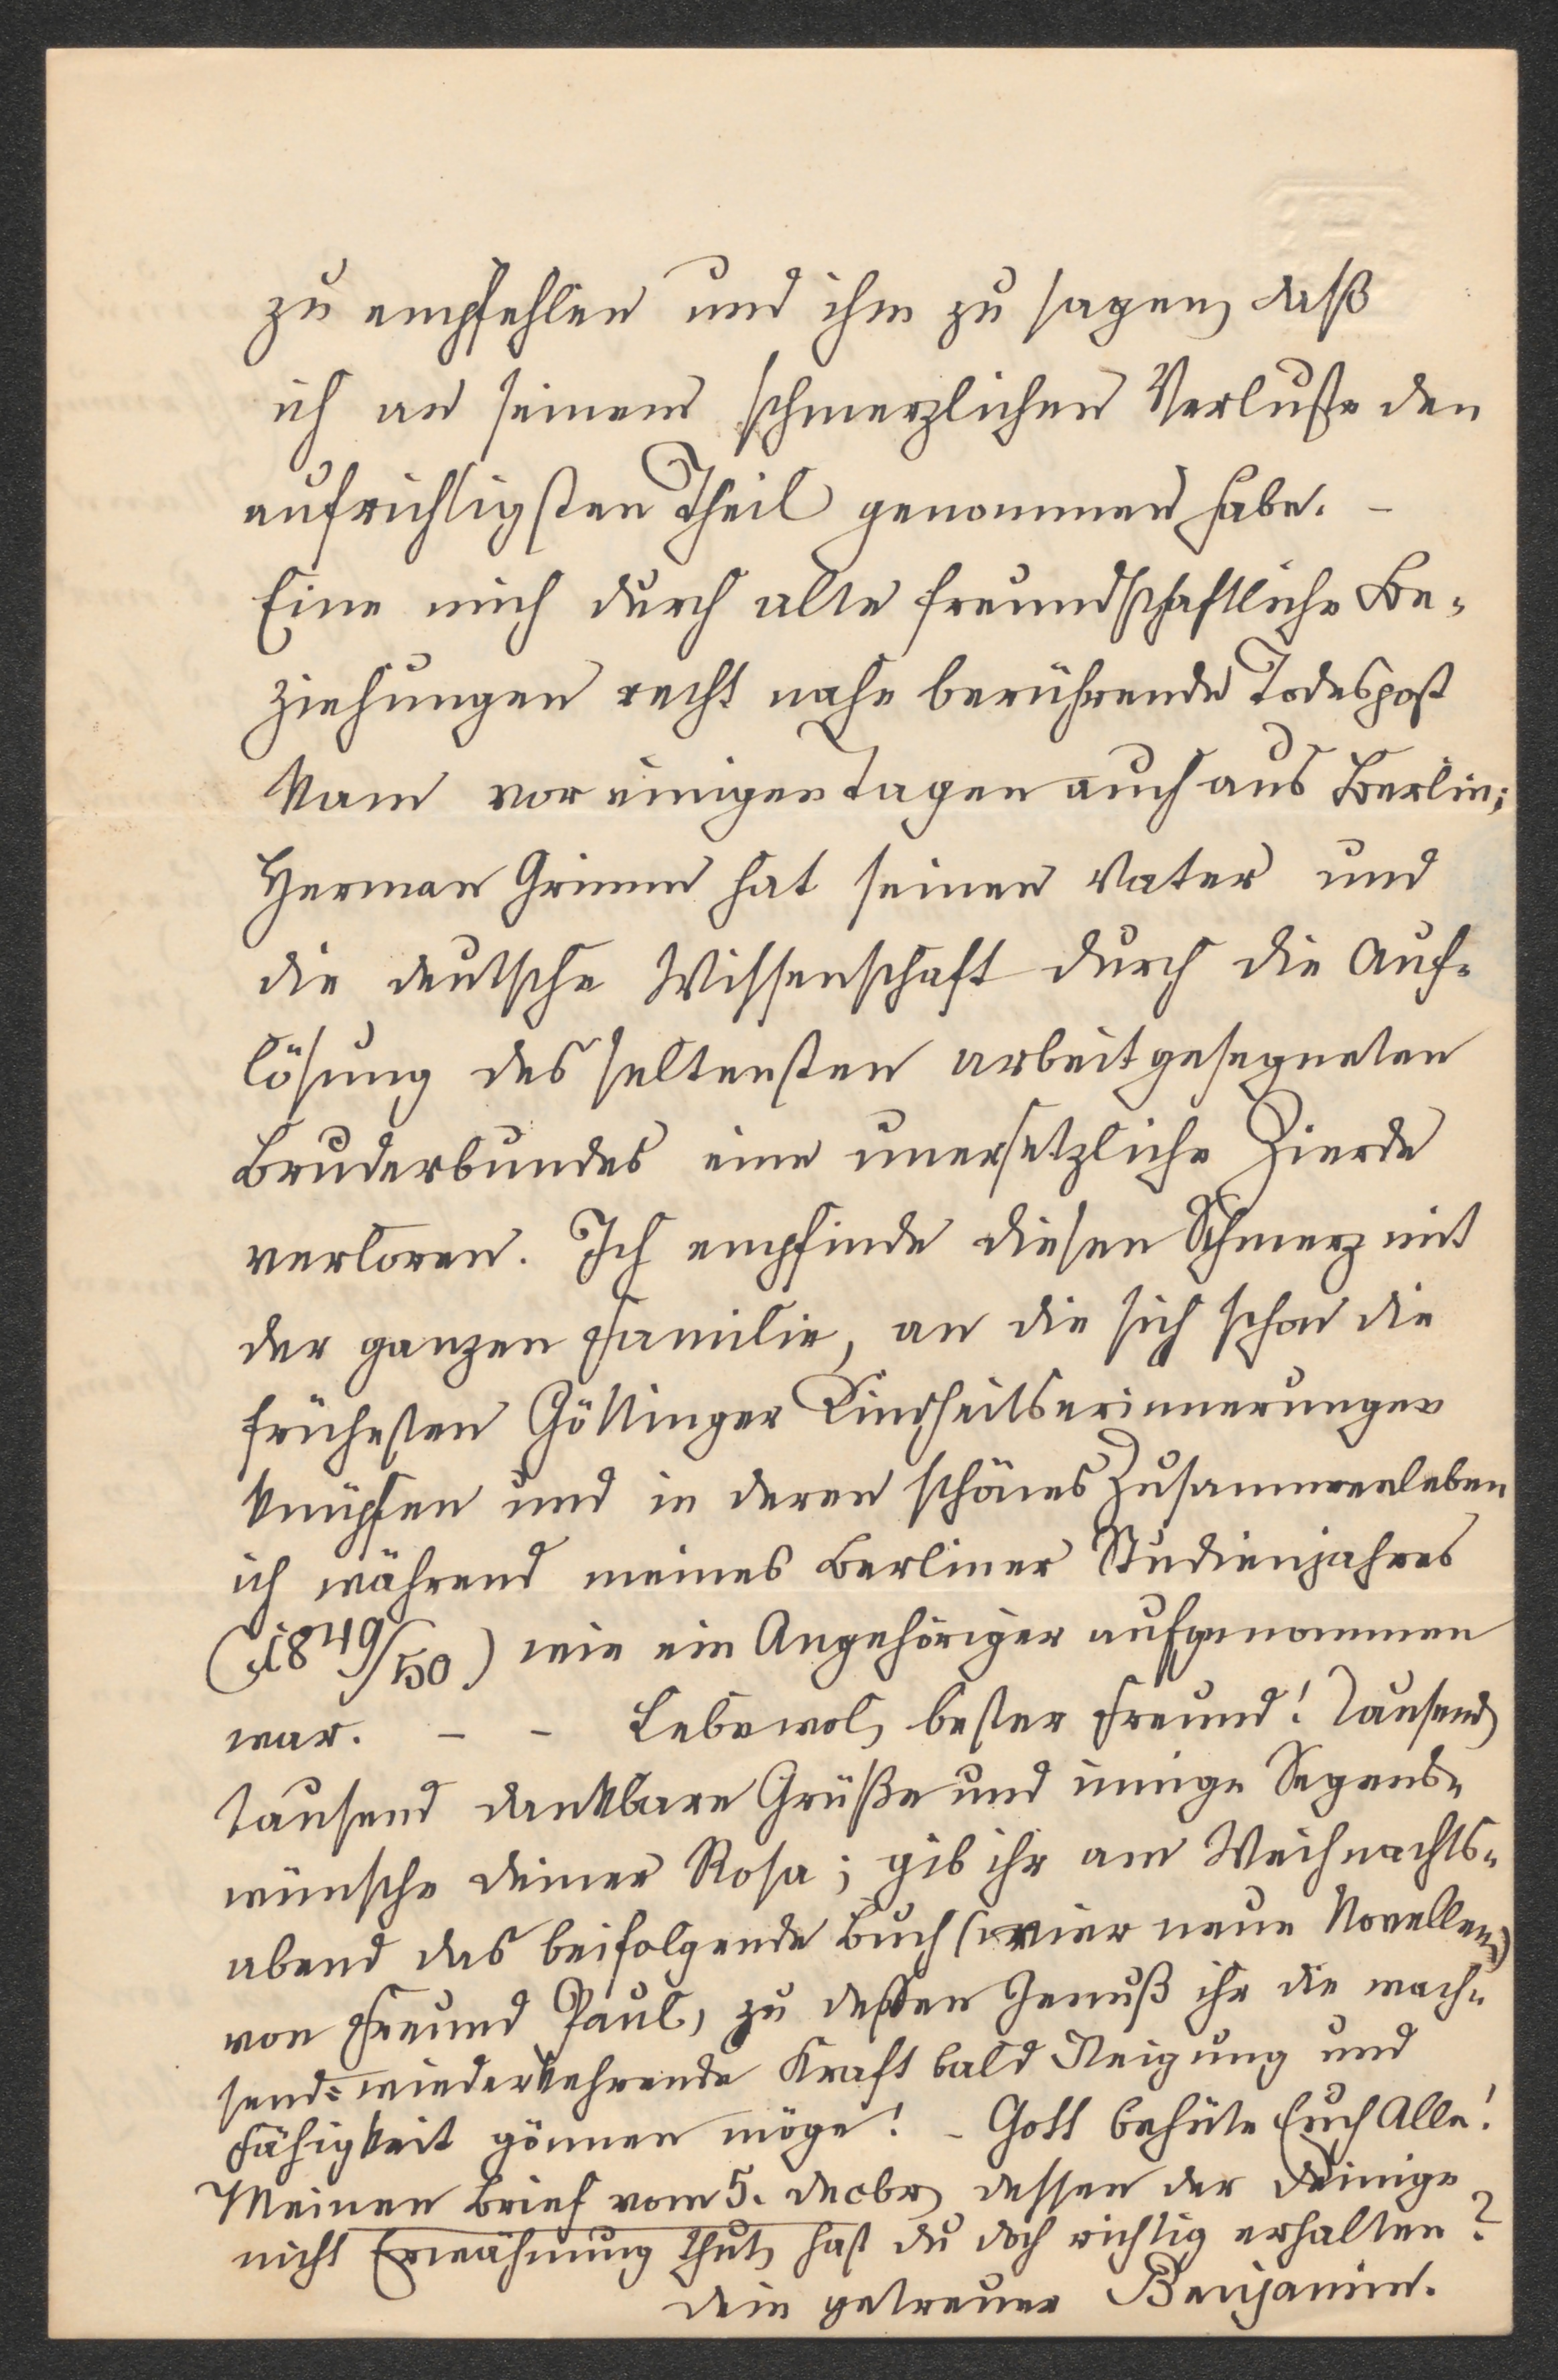 zu empfehlen und ihm zu sagen, daß
ich an seinem schmerzlichen Verluste den
aufrichtigsten Theil genommen habe. –
Eine mich durch alte freundschaftliche Be-
ziehungen recht nahe berührende Todespost
kam vor einigen Tagen auch aus Berlin;
Herman Grimm hat seinen Vater und
die deutsche Wissenschaft durch die Auf-
lösung des seltensten arbeitgesegneten
Bruderbundes eine unersetzliche Zierde
verloren. Ich empfinde diesen Schmerz mit
der ganzen Familie, an die sich schon die
frühesten Göttinger Kindheitserinnerungen
knüpfen und in deren schönes Zusammenleben
ich während meines Berliner Studienjahres
(1849/50) wie ein Angehöriger aufgenommen
war. – – Lebewol, bester Freund! Tausend,
tausend dankbare Grüße und innige Segens-
wünsche deiner Rosa; gib ihr am Weihnachts-
abend das beifolgende Buch (vier neue Novellen)
von Freund Paul, zu deßen Genuß ihr die wach-
send-wiederkehrende Kraft bald Neigung und
Fähigkeit gönnen möge! – Gott behüte Euch Alle!
Meinen Brief vom 5. Decbr, dessen der Deinige
nicht Erwähnung thut, hast du doch richtig erhalten?
Dein getreuer Benjamin.